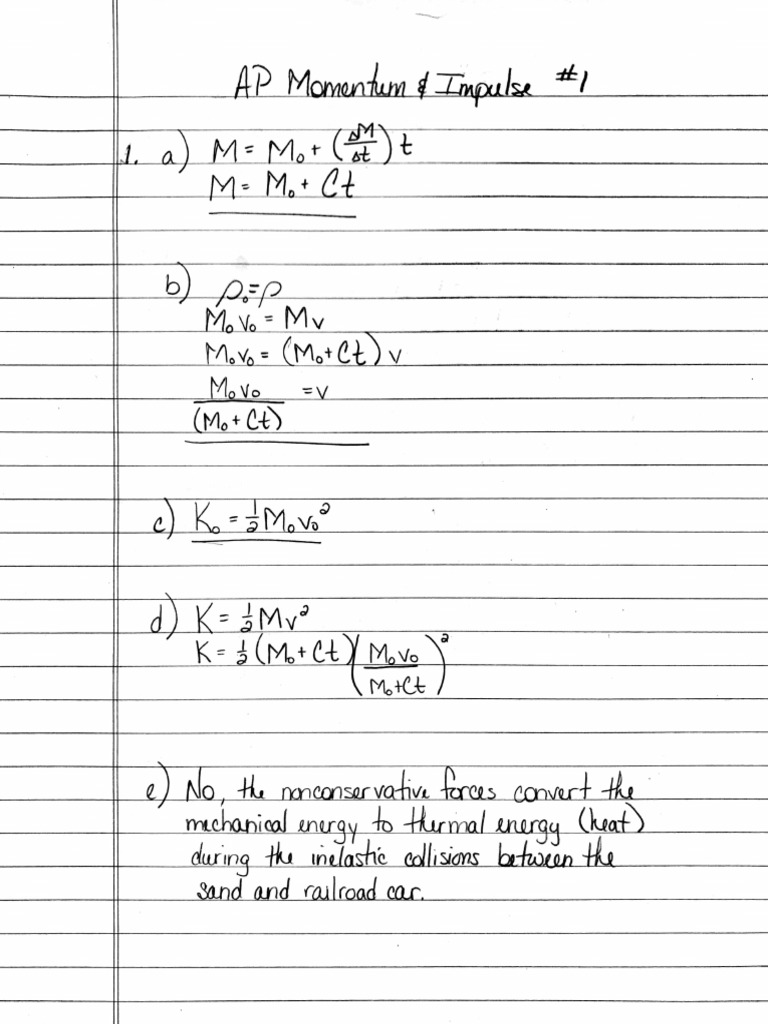 AP Momentum & Impulse #1
1. a) M = M₀ + (ΔM/Δt) t
M = M₀ + Ct
b) ρ₀ = ρ
M₀v₀ = Mv
M₀v₀ = (M₀ + Ct) v
M₀v₀/(M₀ + Ct) = v
c) K₀ = ½M₀v₀²
d) K = ½Mv²
K = ½(M₀ + Ct)(M₀v₀/M₀+Ct)²
e) No, the nonconservative forces convert the
mechanical energy to thermal energy (heat)
during the inelastic collisions between the
sand and railroad car.